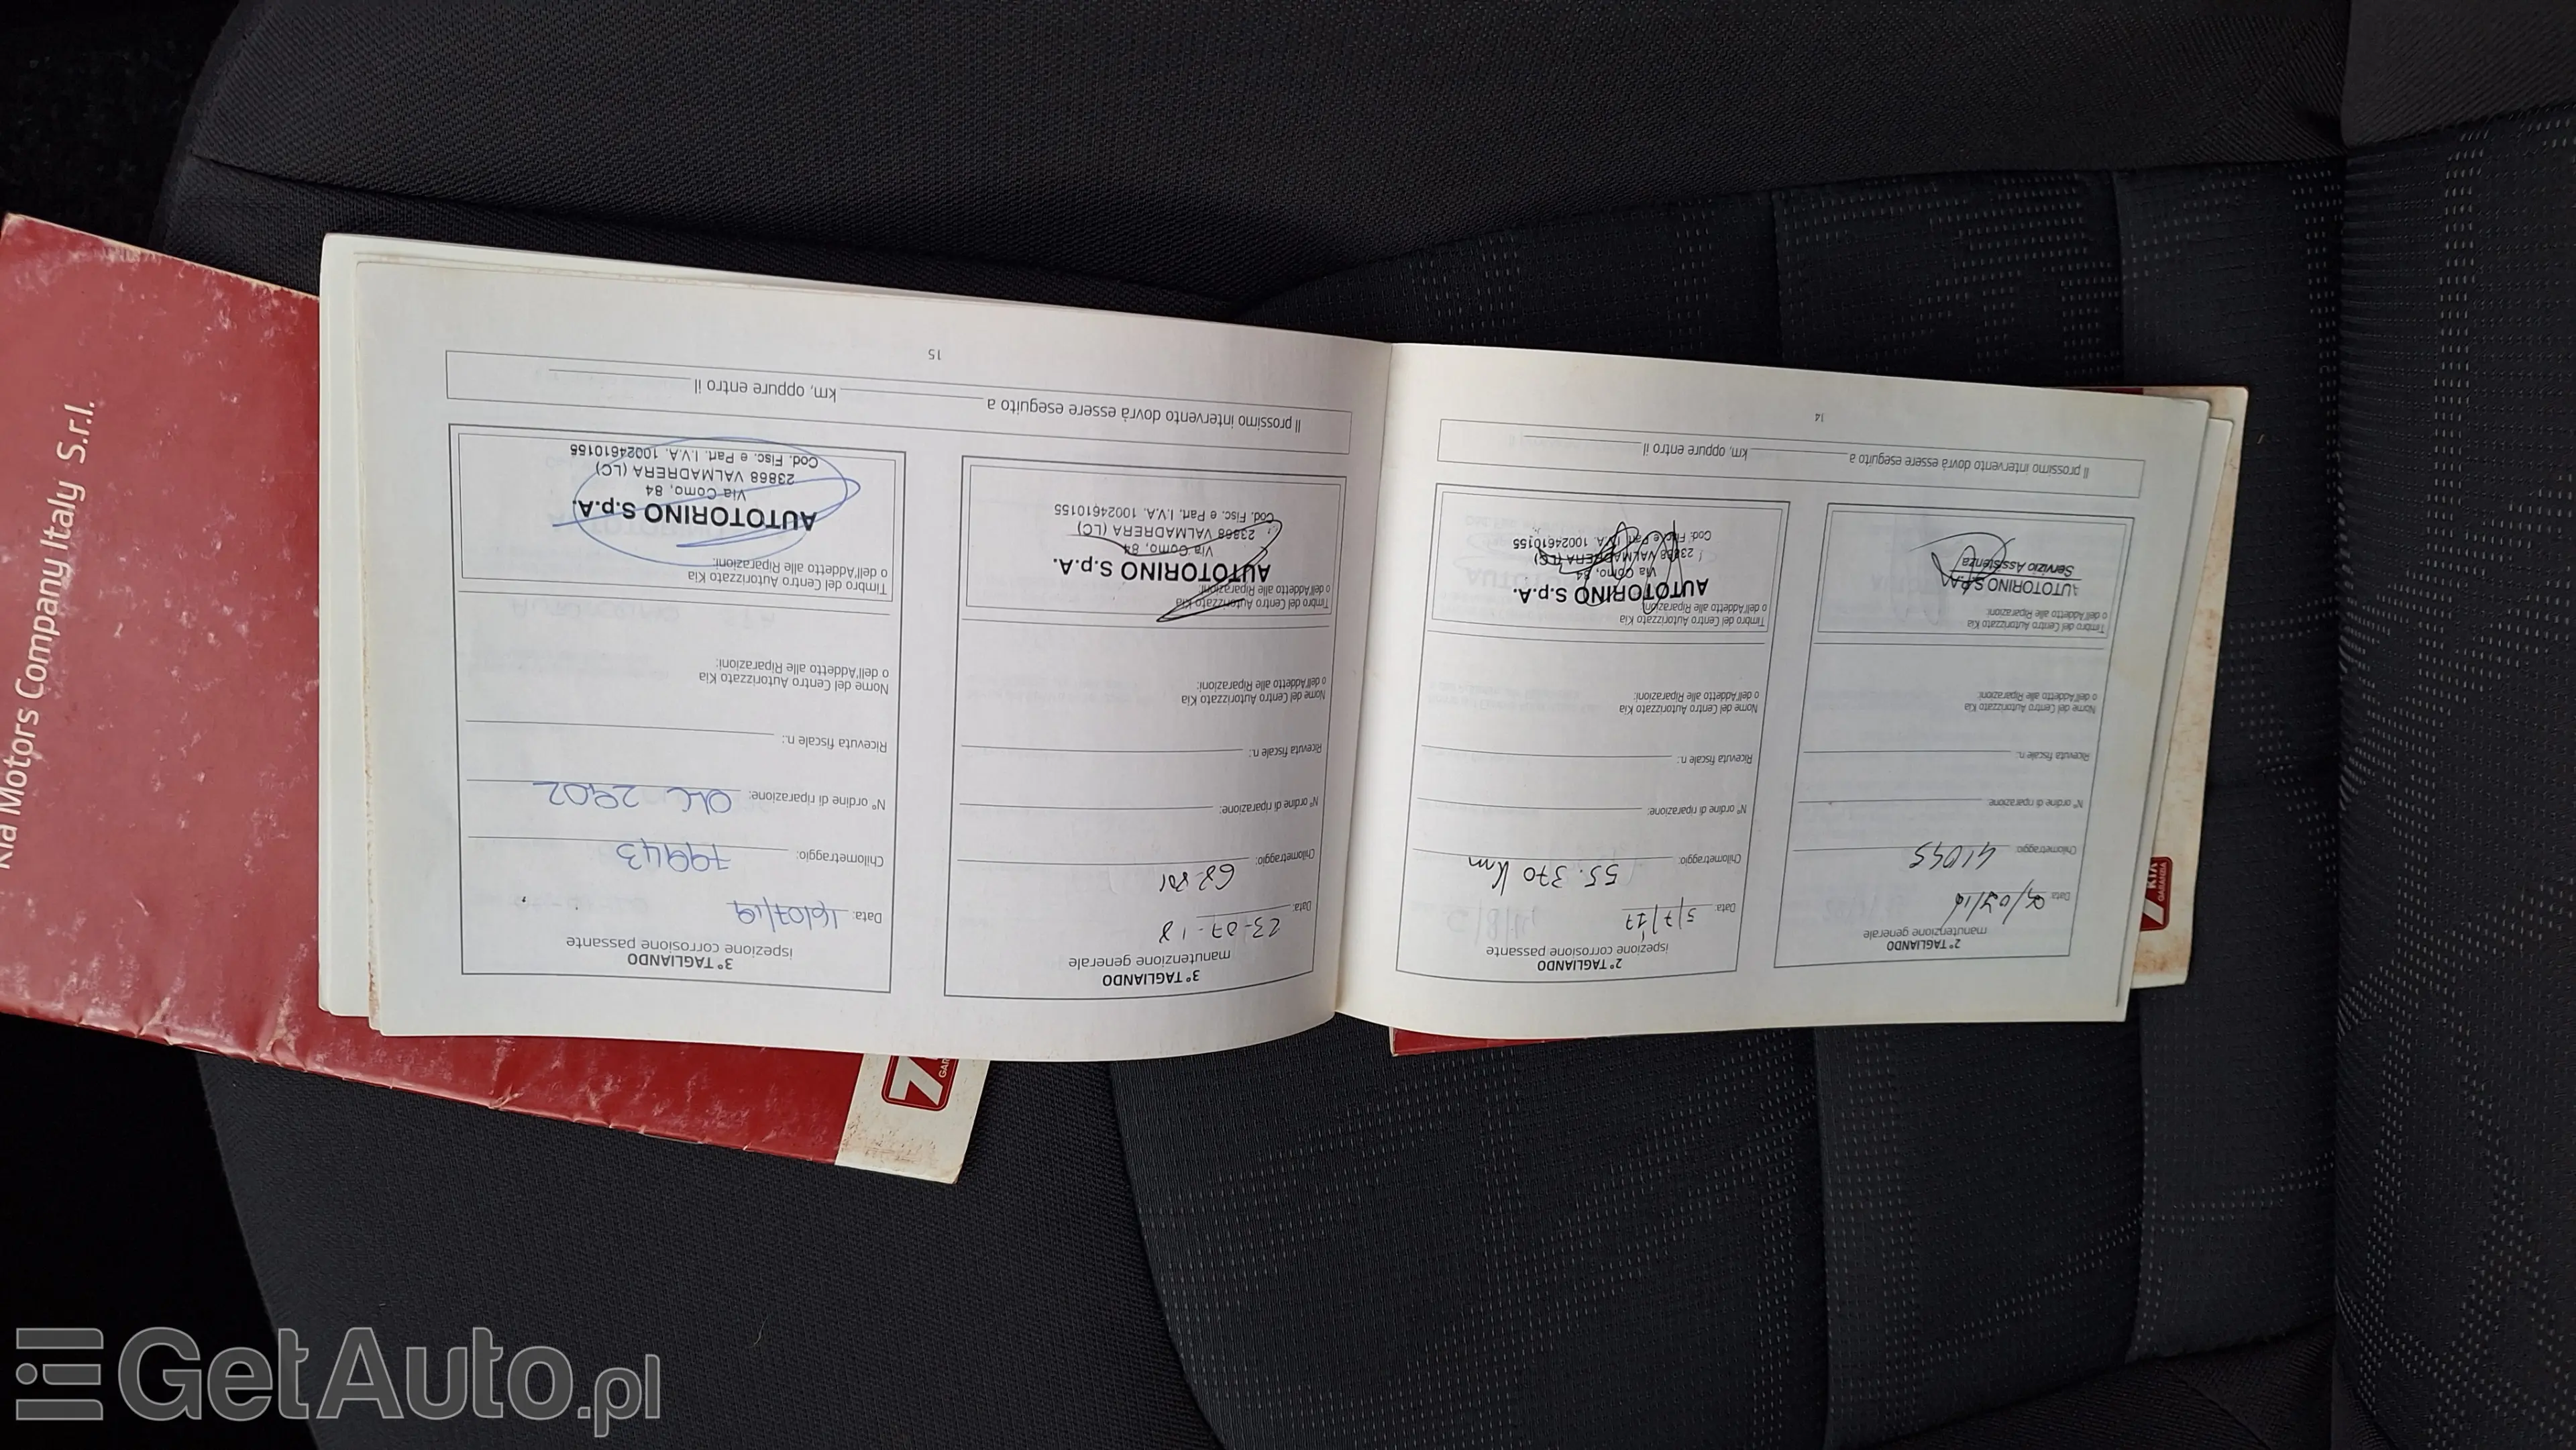 2° TAGLIANDO
manutenzione generale
Data:
Chilometraggio: 41045
N° ordine di riparazione:
Ricevuta fiscale n.:
Nome del Centro Autorizzato Kia
o dell'Addetto alle Riparazioni:
Timbro del Centro Autorizzato Kia
o dell'Addetto alle Riparazioni:
AUTOTORINO S.p.A.
Servizio Assistenza
2° TAGLIANDO
ispezione corrosione passante
Data: 5/7/17
Chilometraggio: 55.370 Km
N° ordine di riparazione:
Ricevuta fiscale n.:
Nome del Centro Autorizzato Kia
o dell'Addetto alle Riparazioni:
Timbro del Centro Autorizzato Kia
o dell'Addetto alle Riparazioni:
AUTOTORINO S.p.A.
Via Como, 84
23868 VALMADRERA (LC)
Cod. Fisc. e Part. I.V.A. 10024610155
Il prossimo intervento dovrà essere eseguito a km, oppure entro il
14
3° TAGLIANDO
manutenzione generale
Data: 23-07-18
Chilometraggio:
N° ordine di riparazione:
Ricevuta fiscale n.:
Nome del Centro Autorizzato Kia
o dell'Addetto alle Riparazioni:
Timbro del Centro Autorizzato Kia
o dell'Addetto alle Riparazioni:
AUTOTORINO S.p.A.
Via Como, 84
23868 VALMADRERA (LC)
Cod. Fisc. e Part. I.V.A. 10024610155
3° TAGLIANDO
ispezione corrosione passante
Data: 16/07/19
Chilometraggio: 79943
N° ordine di riparazione: OLC 2902
Ricevuta fiscale n.:
Nome del Centro Autorizzato Kia
o dell'Addetto alle Riparazioni:
Timbro del Centro Autorizzato Kia
o dell'Addetto alle Riparazioni:
AUTOTORINO S.p.A.
Via Como, 84
23868 VALMADRERA (LC)
Cod. Fisc. e Part. I.V.A. 10024610155
Il prossimo intervento dovrà essere eseguito a km, oppure entro il
15
Kia Motors Company Italy S.r.l.
7
KIA
GARANZIA
7
GetAuto.pl